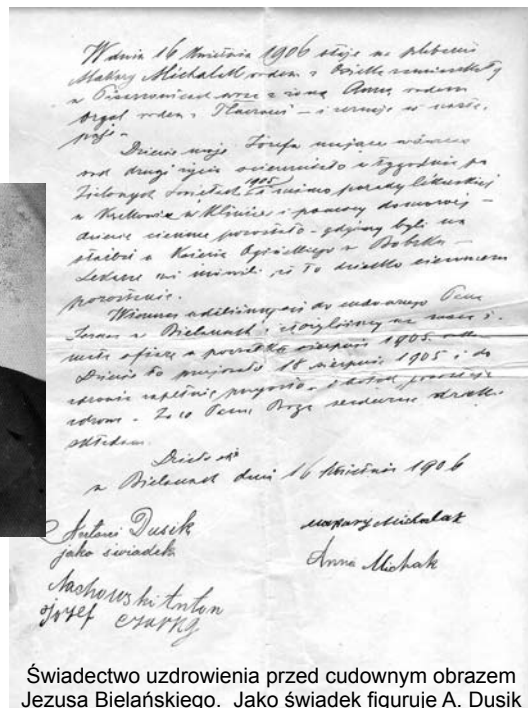 W dniu 16 Kwietnia 1906 staje na plebanii
Makary Michalak rodem z
w Pisarzowicach wraz z żoną Anną rodem
rodem z – i zeznaje co nastę-
puje –
Dziecię moje Józefa mające wówczas
rok drugi życia ociemniało w tygodniu po
Zielonych Świętach 1905 i mimo porady lekarskiej
w Krakowie w Klinice i pomocy domowej –
dziecię ciemne pozostało – gdyśmy byli na
służbie u Księcia Ogińskiego w Bobrku –
Lekarze mi mówili że to dziecko ciemnem
pozostanie.
Wówczas udaliśmy się do cudownego Pana
Jezusa w Bielanach i na mszę i
ofiarę z początku sierpnia 1905
Dziecię to przejrzało 18 sierpnia 1905 i do
zdrowia zupełnie i dotąd pozostaje
zdrowe – Za co Panu Bogu serdeczne dzięki
składam.
Działo się
w Bielanach dnia 16 Kwietnia 1906
Antoni Dusik
jako świadek
Makary Michalak
Anna Michalak
Nachowski Anton
Jozef
Świadectwo uzdrowienia przed cudownym obrazem
Jezusa Bielańskiego. Jako świadek figuruje A. Dusik